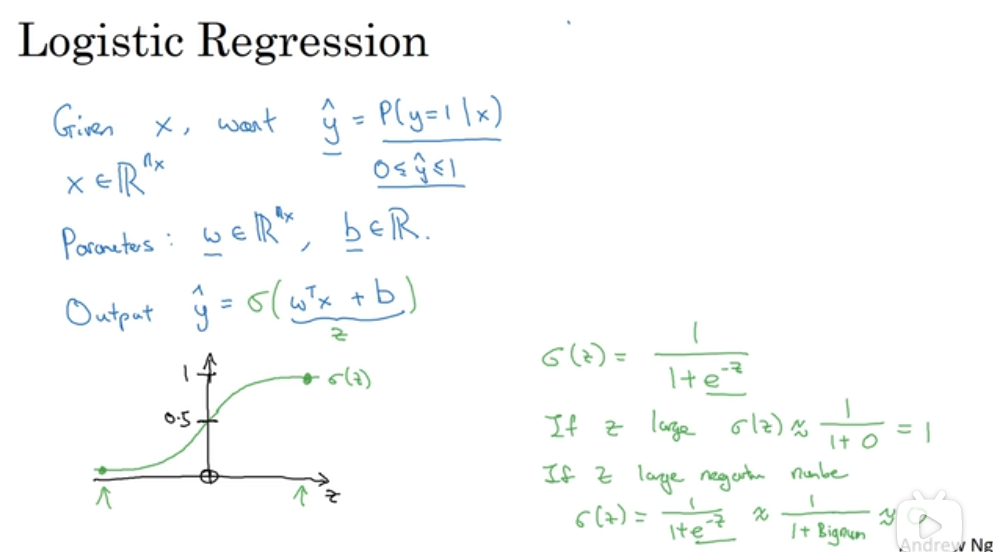 Logistic Regression
Given x, want ŷ = P(y=1|x)
x ∈ ℝⁿˣ
0 ≤ ŷ ≤ 1
Parameters: w ∈ ℝⁿˣ, b ∈ ℝ.
Output ŷ = σ(wᵀx + b)
z
1
σ(z)
0.5
z
σ(z) = 1 / (1 + e^(-z))
If z large σ(z) ≈ 1 / (1 + 0) = 1
If z large negative number
σ(z) = 1 / (1 + e^(-z)) ≈ 1 / (1 + Bignum) ≈
Andrew Ng